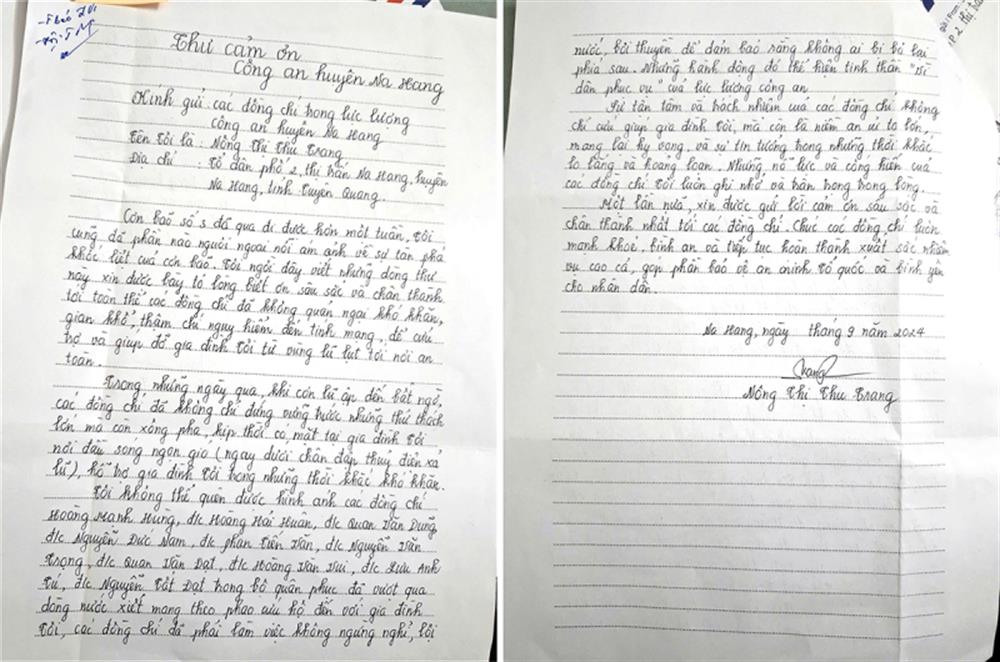 Thư cảm ơn
Công an huyện Na Hang
Kính gửi các đồng chí trong lực lượng
Công an huyện Na Hang
Tên tôi là: Nông Thị Thu Trang
Địa chỉ : Tổ dân phố 2, thị trấn Na Hang, huyện
Na Hang, tỉnh Tuyên Quang.
Cơn bão số 3 đã qua đi được hơn một tuần, tôi
cũng đã phần nào nguôi ngoai nỗi ám ảnh về sự tàn phá
khốc liệt của cơn bão. Tôi ngồi đây viết những dòng thư
này xin được bày tỏ lòng biết ơn sâu sắc và chân thành
tới toàn thể các đồng chí đã không quản ngại khó khăn,
gian khổ, thậm chí nguy hiểm đến tính mạng, để cứu
trợ và giúp đỡ gia đình tôi từ vùng lũ lụt tới nơi an
toàn.
Trong những ngày qua, khi cơn lũ ập đến bất ngờ,
các đồng chí đã không chỉ đứng vững trước những thử thách
lớn mà còn xông pha, kịp thời có mặt tại gia đình tôi
nơi đầu sóng ngọn gió (ngay dưới chân đập thuỷ điện xả
lũ), hỗ trợ gia đình tôi trong những thời khắc khó khăn.
Tôi không thể quên được hình ảnh các đồng chí
Hoàng Mạnh Hùng, đ/c Hoàng Hải Huân, đ/c Quan Văn Dũng
đ/c Nguyễn Đức Nam, đ/c Phan Tiến Văn, đ/c Nguyễn Văn
Trọng, đ/c Quan Văn Đạt, đ/c Hoàng Văn Vui, đ/c Lưu Anh
Tú, đ/c Nguyễn Tất Đạt trong bộ quân phục đã vượt qua
dòng nước xiết mang theo phao cứu hộ đến với gia đình
tôi, các đồng chí đã phải làm việc không ngừng nghỉ, lội
nước, bơi thuyền để đảm bảo rằng không ai bị bỏ lại
phía sau. Những hành động đó thể hiện tinh thần "Vì
dân phục vụ" của lực lượng công an.
Sự tận tâm và trách nhiệm của các đồng chí không
chỉ cứu giúp gia đình tôi, mà còn là niềm an ủi to lớn,
mang lại hy vọng, và sự tin tưởng trong những thời khắc
lo lắng và hoảng loạn. Những nỗ lực và cống hiến của
các đồng chí tôi luôn ghi nhớ và trân trọng trong lòng.
Một lần nữa, xin được gửi lời cảm ơn sâu sắc và
chân thành nhất tới các đồng chí. Chúc các đồng chí luôn
mạnh khoẻ, bình an và tiếp tục hoàn thành xuất sắc nhiệm
vụ cao cả, góp phần bảo vệ an ninh tổ quốc và bình yên
cho nhân dân.
Na Hang, ngày tháng 9 năm 2024
Nông Thị Thu Trang